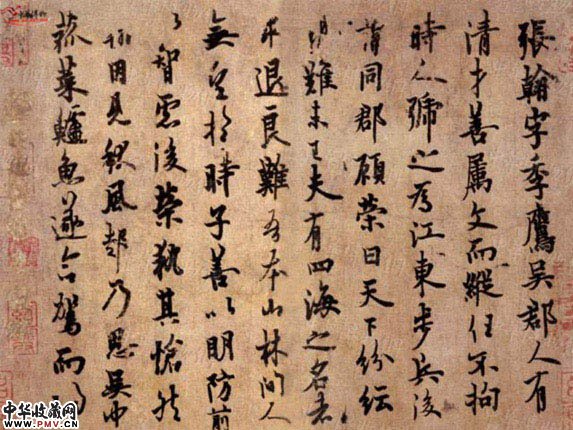 張翰字季鷹吳郡人有
清才善屬文而縱任不拘
時人號之為江東步兵後
謂同郡顧榮曰天下紛紜
禍難未已夫有四海之名者
求退良難吾本山林間人
無望於時子善以明防前
以智慮後榮執其愴然
翰因見秋風起乃思吳中
菰菜鱸魚遂命駕而歸
中华收藏网
WWW.PMV.CN